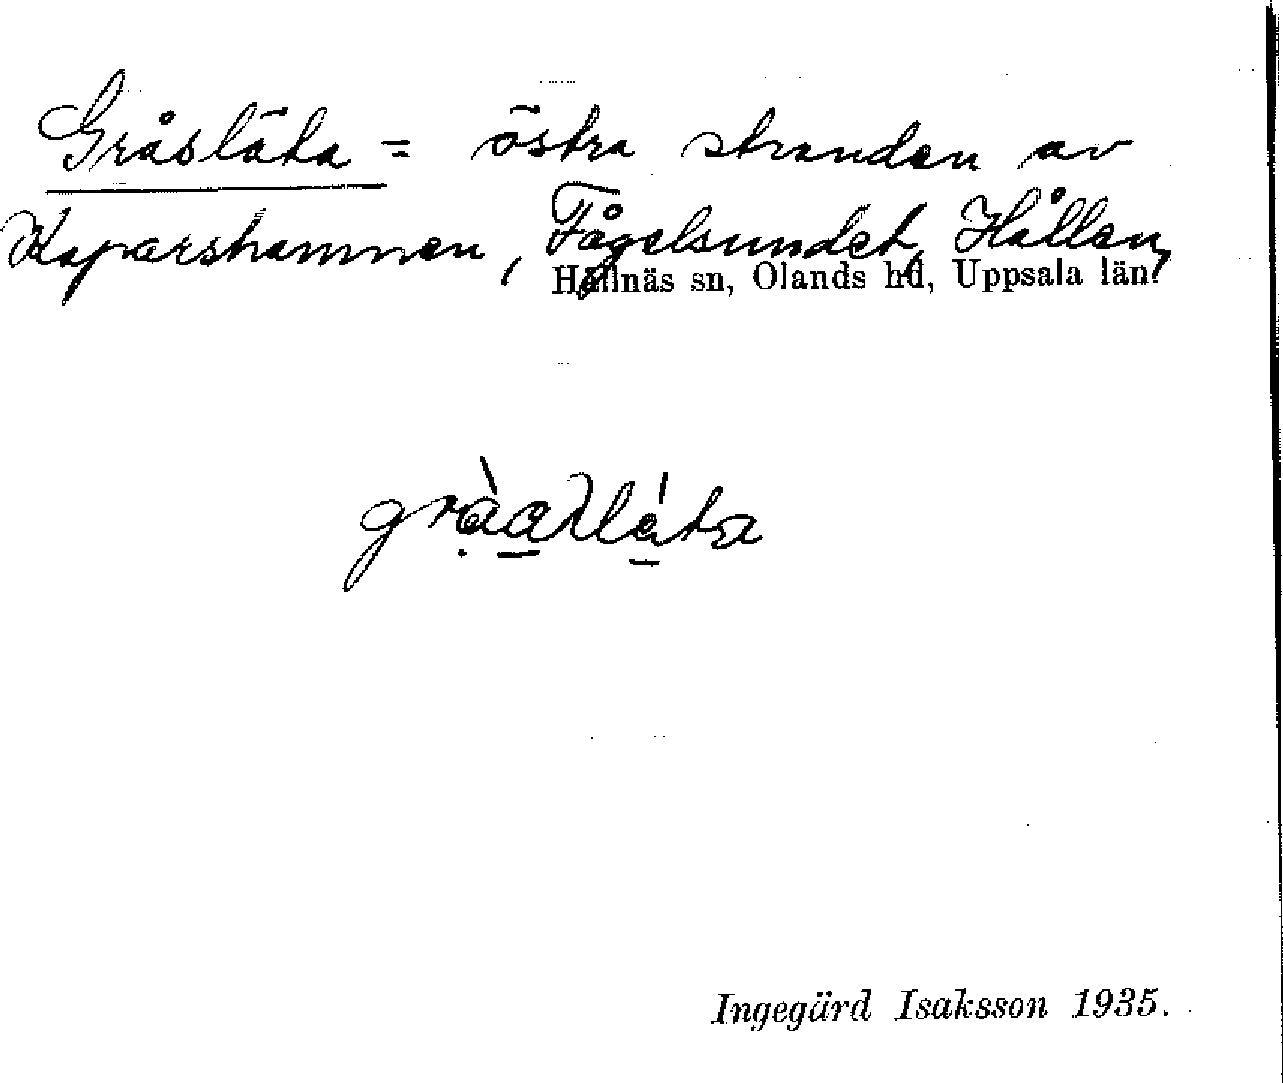 Gråsläta = östra stranden av
Kaparshamnen, Fågelsundet, Hållen,
Hållnäs sn, Olands hd, Uppsala län.
Ingegärd Isaksson 1935.